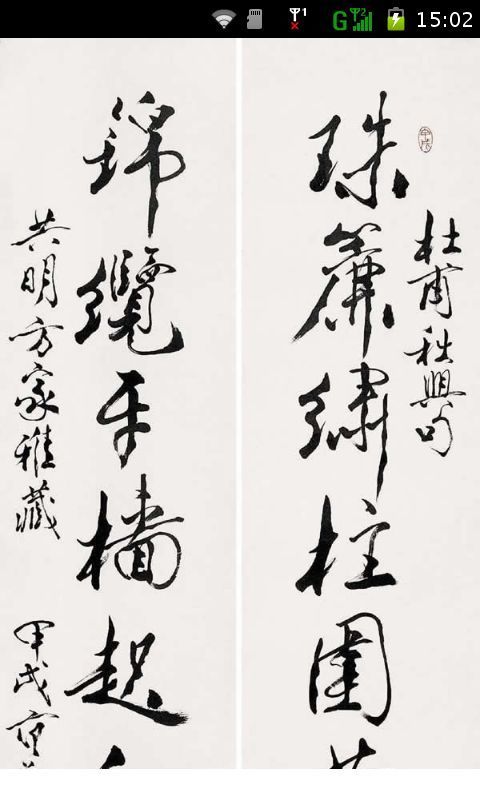 G 15:02
杜甫秋興句
甲戌
珠簾繡柱圍
錦纜牙檣起
共明方家雅藏
甲戌